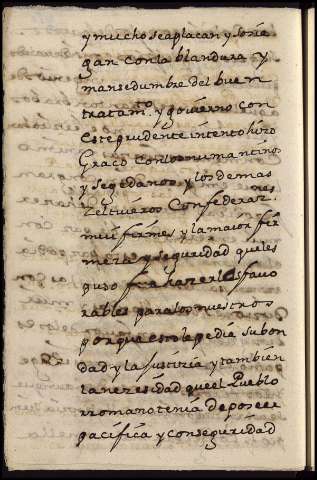 y mucho se aplacan y sosie
gan con la blandura y
mansedumbre del buen
tratamto. y govierno con
este prudente intento hizo
Graco con los numantinos
y segedanos y los demas
zeltiveros confederaz.nes
mui firmes y la maior fir
meza y seguridad que les
puso fue hazerles favo
rables para los nuestros
porque esto le pedia su bon
dad y la justizia y tambien
la nezesidad que el Pueblo
rromano tenia de poseer
pacifica y con seguridad